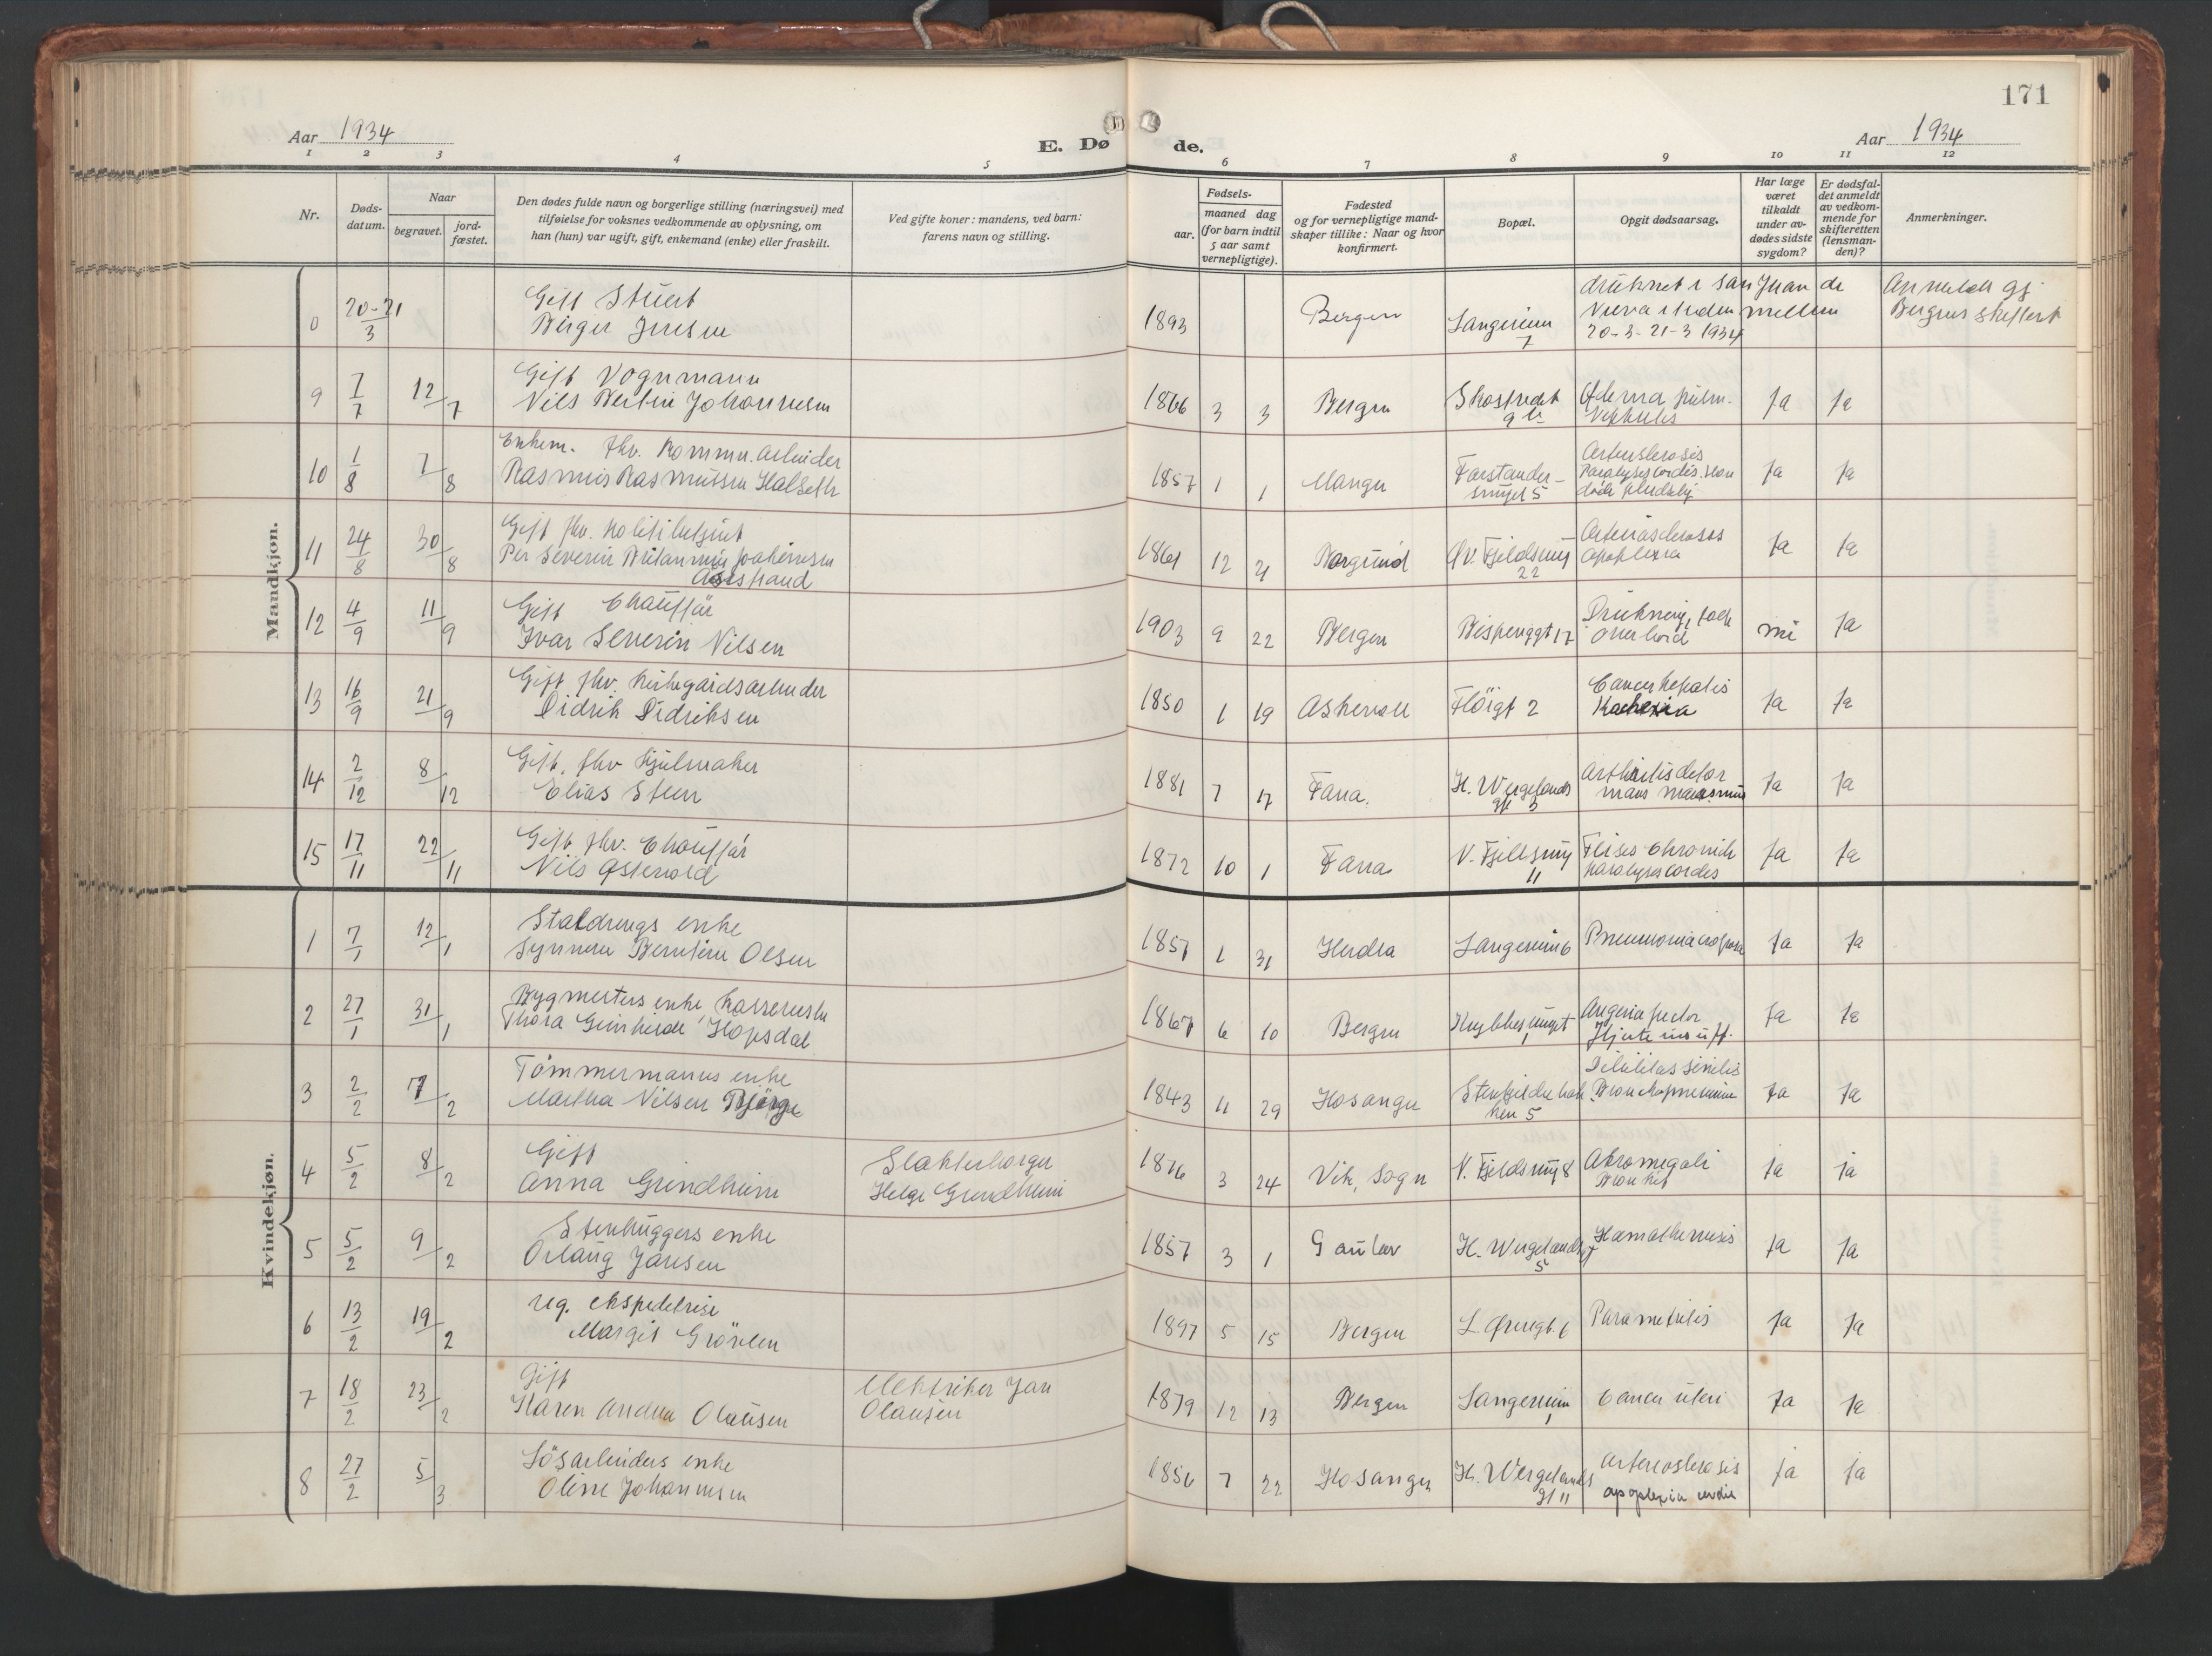 171
Aar 1934
E. Dø de.
Aar 1934
1 2 3 4 5 6 7 8 9 10 11 12
Nr.
Døds-
datum.
Naar
begravet.
jord-
fæstet.
Den dødes fulde navn og borgerlige stilling (næringsvei) med
tilføielse for voksnes vedkommende av oplysning, om
han (hun) var ugift, gift, enkemand (enke) eller fraskilt.
Ved gifte koner: mandens, ved barn:
farens navn og stilling.
Fødsels-
aar.
maaned dag
(for barn indtil
5 aar samt
vernepligtige).
Fødested
og for vernepligtige mand-
skaper tillike: Naar og hvor
konfirmert.
Bopæl.
Opgit dødsaarsag.
Har læge
været
tilkaldt
under av-
dødes sidste
sygdom?
Er dødsfal-
det anmeldt
av vedkom-
mende for
skifteretten
(lensman-
den)?
Anmerkninger.
Mandkjøn.
0 20-21/3 Gift Stuert
Birger Jensen
1893 Bergen
7
druknet i San Juan de
Nieva i tiden mellem
20-3-21-3 1934
Anmeldt gj
Bergens skifteret
9 7/7 12/7 Gift Vognmann
Nils Bertin Johannesen
1866 3 3 Bergen Skostredet
9
Ødema pulm.
Nephritis
Ja Ja
10 1/8 7/8 Enkem. fhv. Kommu. arbeider
Rasmus Rasmussen Halseth
1857 1 1 Manger Forstander-
smuget 5
Ja Ja
11 24/8 30/8 Gift fhv. Politibetjent
Per Severin
Aasstrand
1861 12 21 Borgund Øv. Fjeldsmug
22
Arteriosclerosis
Apoplexia
Ja Ja
12 4/9 11/9 Gift Chauffør
Ivar Severin Nilsen
1903 9 22 Bergen Bispenggt 17 Drukning, falt
overbord
nei Ja
13 16/9 21/9 Gift fhv. kirkegaardsarbeider
Didrik Didriksen
1850 1 19 Askevoll Fløigt 2 Cancer hepatis
Kachexia
Ja Ja
14 2/12 8/12 Gift. fhv Hjulmaker
Elias Steen
1881 7 17 Fana. H. Wergelands
gt 3
Arthritis defor
mans marasmus
Ja Ja
15 17/11 22/11 Gift. fhv. Chauffør
Nils Østevold
1872 10 1 Fana V. Fjeldsmug
11
Ftisis chronich
paralysis cordis
Ja Ja
Kvindekjøn.
1 7/1 12/1 Staldrengs enke
Synneva Berntine Olsen
1857 1 31 Herdla Pneumonia crouposa
Ja Ja
2 27/1 31/1 Bygmesters enke, kassererske
Thora Hopsdal
1867 6 10 Bergen
1
Angina pector
Hjerte insuff.
Ja Ja
3 2/2 7/2 Tømmermanns enke
Martha Nilsen Bjørge
1843 11 29 Hosanger
ken 5
Debilitas senilis
Bronchopneumoni
Ja Ja
4 5/2 8/2 Gift
Anna Grindheim
Slakterborger
Helge Grindheim
1876 3 24 Vik, Sogn V. Fjeldsmug 8 Akromegali
Bronkit
Ja ja
5 5/2 9/2 Stenhuggers enke
Orlaug Jansen
1857 3 1 Gaular H. Wergelandsgt
5
Hæmathemesis
Ja Ja
6 13/2 19/2 ug. ekspeditrise
Margit Grövlen
1897 5 15 Bergen L. Øvregt. 6 Parametritis
Ja Ja
7 18/2 23/2 Gift
Karen Andrea Olausen
Elektriker Jan
Olausen
1879 12 13 Bergen
1
Cancer uteri
Ja Ja
8 27/2 5/3 Løsarbeiders enke
Oline Johannesen
1856 7 22 Hosanger H. Wergelands
gt 11
Arteriosclerosis
apoplexia cerebri
Ja Ja